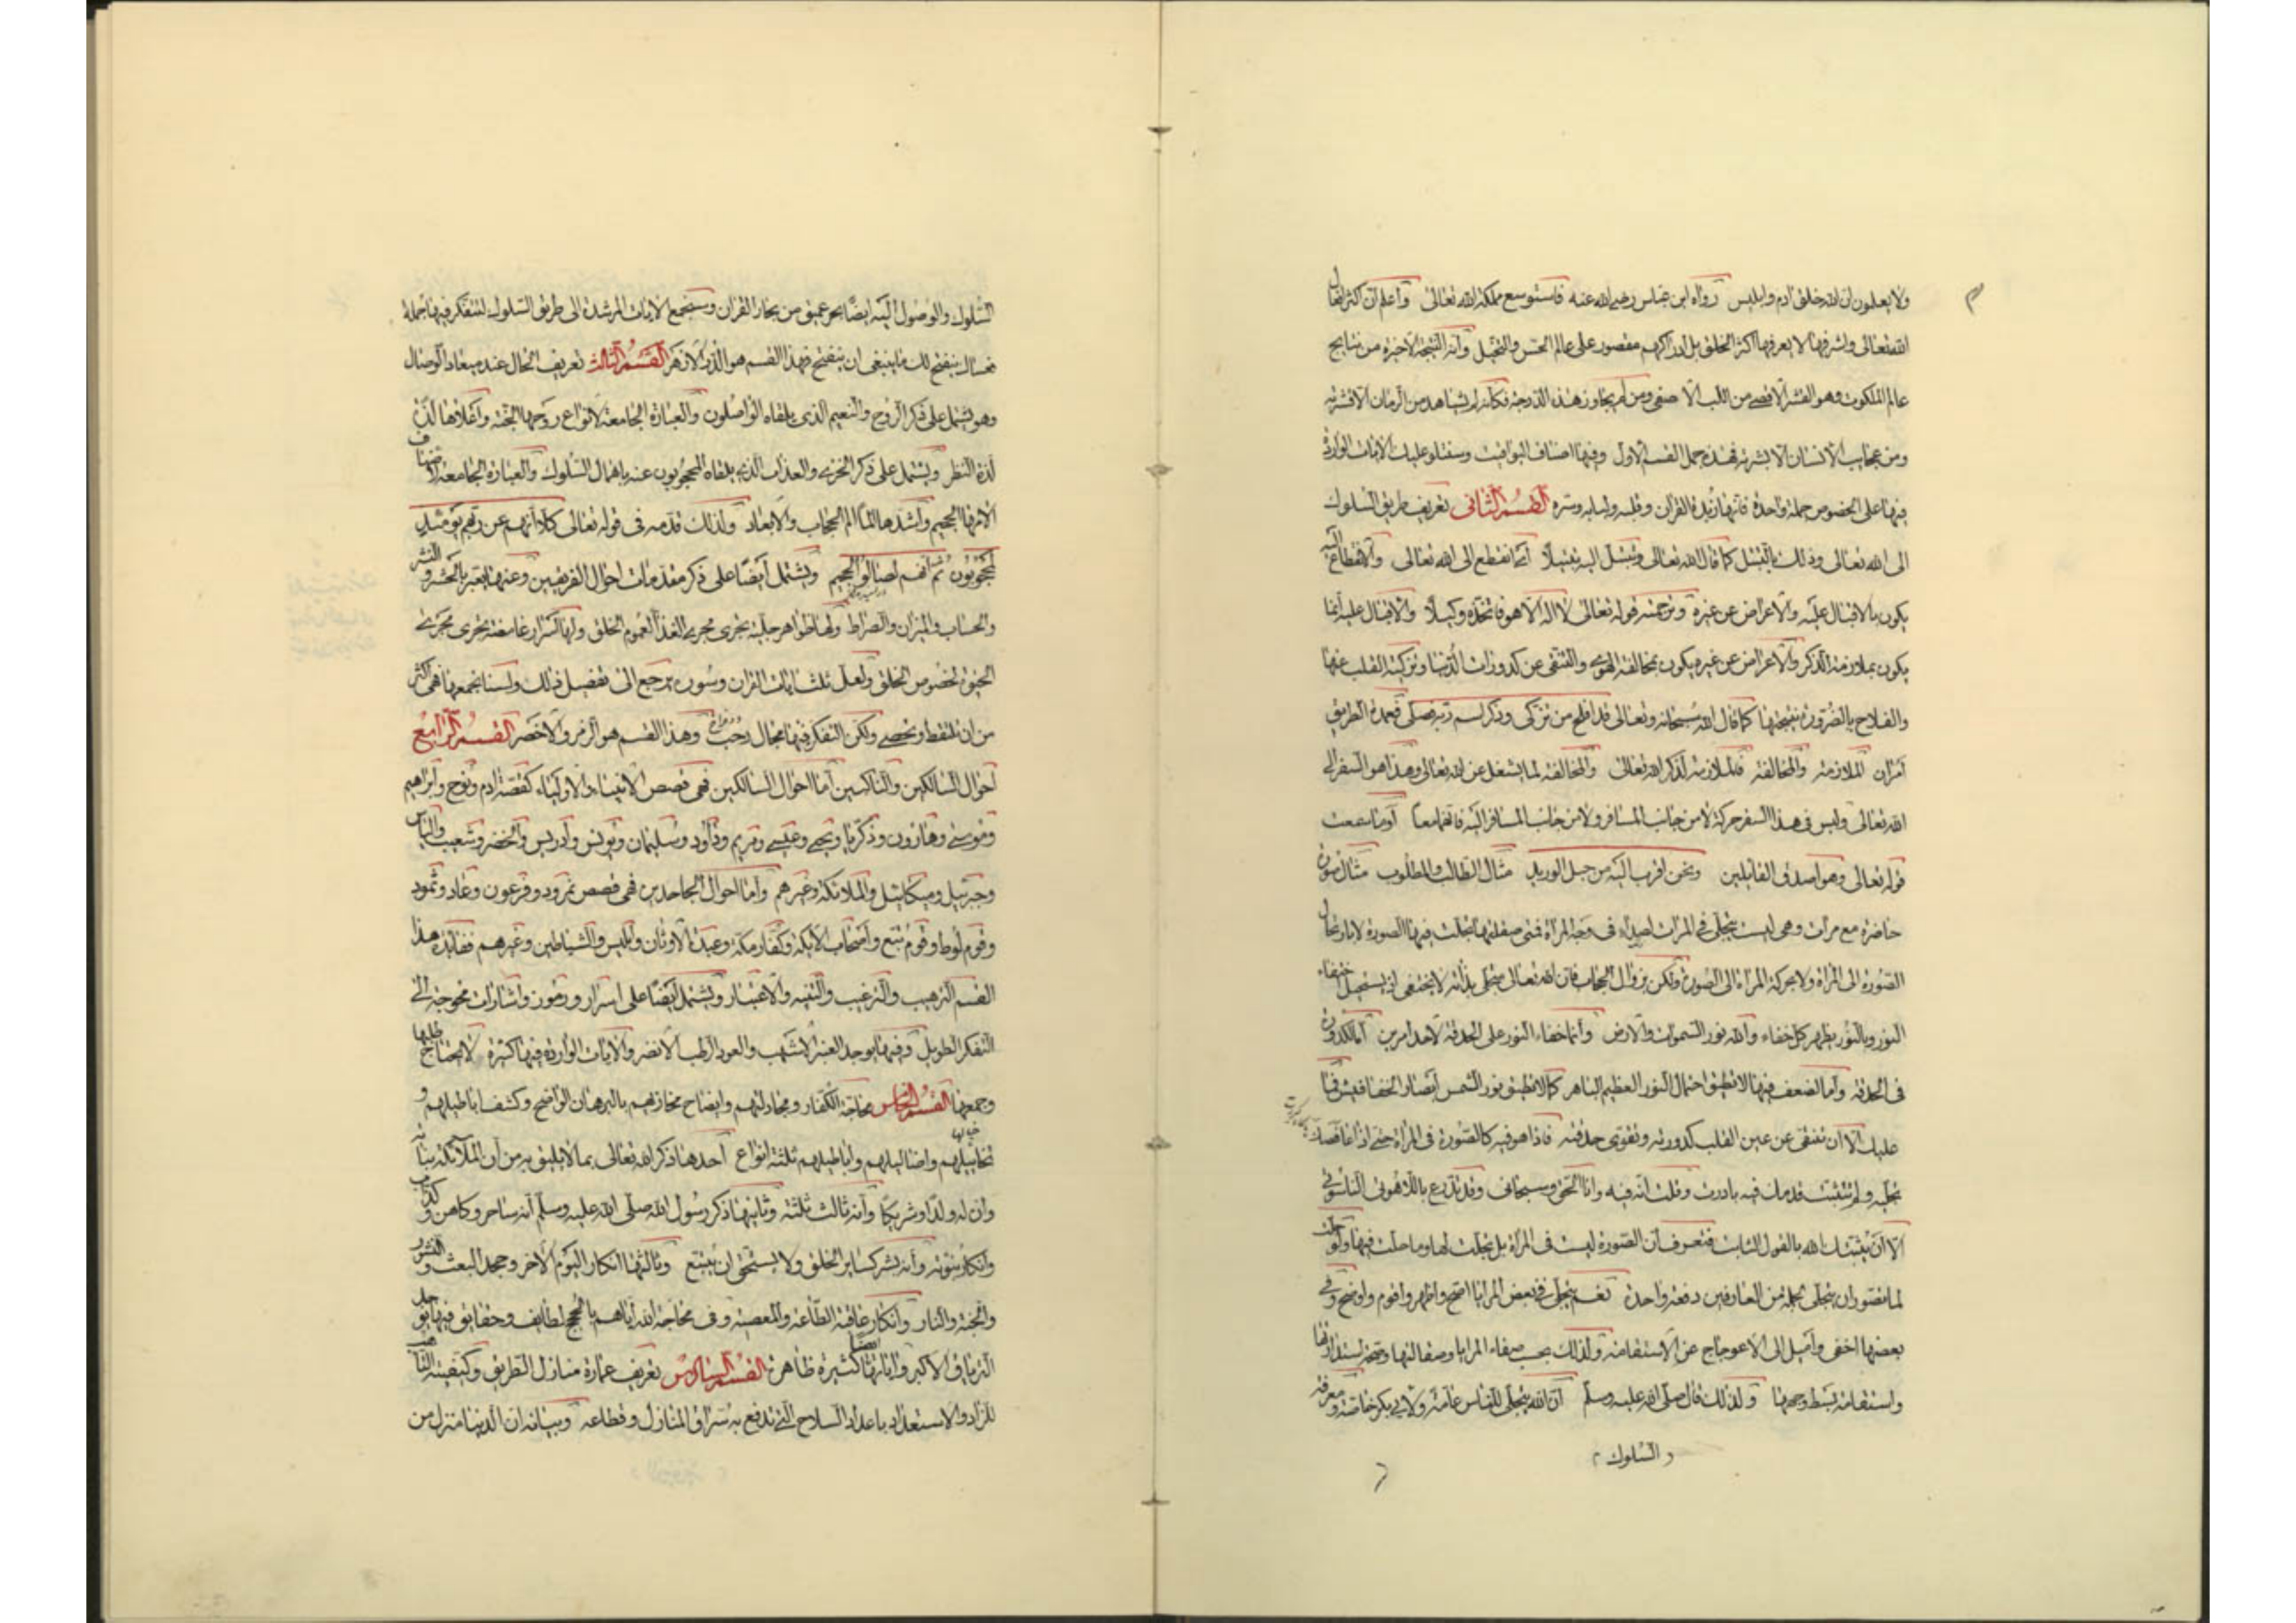 ولا يعلمون ان الله خلق ادم وابليس رواه ابن عباس رضي الله عنه فاستوسع مملكة الله تعالى واعلم ان اكثر افعال
الله تعالى واشرفها لا يعرفها اكثر الخلق بل ادراكهم مقصور على عالم الحس والتخيل وانه النتيجة الاخيرة من نتايج
عالم الملكوت وهو القشر الاقصى من اللب الاصفى ومن لم يجاوز هذه الدرجة فكانه لم يشاهد من الرمان الا قشرته
ومن عجايب الانسان الا بشرته فهذه جمل القسم الاول وفيها اصناف اليواقيت وسنتلو عليك الايات الواردة
فيها على الخصوص جملة واحدة فانها زبدة القران وقلبه ولبابه وسره القسم الثاني تعريف طريق السلوك
الى الله تعالى وذلك بالتبتل كما قال الله تعالى وتبتل اليه تبتيلا اى انقطع الى الله تعالى والانقطاع اليه
يكون بالاقبال عليه والاعراض عن غيره وترجمته قوله تعالى لا اله الا هو فاتخذه وكيلا والاقبال عليه انما
يكون بملازمة الذكر والاعراض عن غيره يكون بمخالفة الهوى والتنقى عن كدورات الدنيا وتزكية القلب عنها
والفلاح بالضرورة نتيجتها كما قال الله سبحانه وتعالى قد افلح من تزكى وذكر اسم ربه فصلى فعمدة الطريق
امران الملازمة والمخالفة فالملازمة لذكر الله تعالى والمخالفة لما يشغل عن الله تعالى وهذا هو السفر الى
الله تعالى وليس فى هذا السفر حركة لا من جانب المسافر ولا من جانب المسافر اليه فانهما معا اوما سمعت
قوله تعالى وهو اصدق القايلين ونحن اقرب اليه من حبل الوريد مثال الطالب والمطلوب مثال صورة
حاضرة مع مرات وهى ليست يتجلى فى المرات لصداء فى وجه المراة فمتى صقلتها تجلت فيها الصورة لا بارتحال
الصورة الى المراة ولا بحركة المراة الى الصورة ولكن بزوال الحجاب فان الله تعالى متجلى بذاته لا يختفى اذ يستحيل اختفاء
النور وبالنور يظهر كل خفاء والله نور السموات والارض وانما خفاء النور على الحدقة لاحد امرين اما لكدورة
فى الحدقة واما لضعف فيها لا تطيق احتمال النور العظيم الباهر كما لا تطيق نور الشمس ابصار الخفافيش فما
عليك الا ان تنقى عن عين القلب كدورته وتقوى حدقته فاذا هو فيه كالصورة فى المراة حتى اذا غافصك
تجليه ولم تتثبت قدمك فيه بادرت وقلت انه فيه وانا الحق وسبحانى وقد تدرع باللاهوت الناسوتى
الا ان يثبتك الله بالقول الثابت فتعرف ان الصورة ليست فى المراة بل تجلت لها وما حلت فيها ولو حلت
لما تصور ان يتجلى لجملة من العارفين دفعة واحدة نعم يتجلى فى بعض المرايا اصح واظهر واقوم واوضح وفى
بعضها اخفى واميل الى الاعوجاج عن الاستقامة ولذلك بحسب صفاء المرايا وصقالتها وصحة استدارتها
واستقامة بسط وجهها ولذلك قال صلى الله عليه وسلم ان الله يتجلى للناس عامة ولابى بكر خاصة ومعرفة
السلوك
السلوك والوصول اليه ايضا بحر عميق من بحار القران وسنجمع الايات المرشدة الى طريق السلوك لتتفكر فيها جملة
فعساك ينفتح لك ما ينبغى ان ينفتح فهذا القسم هو الدر الازهر القسم الثالث تعريف الحال عند ميعاد الوصال
وهو يشتمل على ذكر الروح والنعيم الذى يلقاه الواصلون والعبارة الجامعة لانواع روحها الجنة واعلاها لذة
لذة النظر ويشتمل على ذكر الخزى والعذاب الذى يلقاه المحجوبون عنه باهمال السلوك والعبارة الجامعة لاصناف
الامها الجحيم واشدها الما الم الحجاب والابعاد ولذلك قدمه فى قوله تعالى كلا انهم عن ربهم يومئذ
لمحجوبون ثم انهم لصالوا الجحيم ويشتمل ايضا على ذكر مقدمات احوال الفريقين وعنها يعبر بالحشر والنشر
والحساب والميزان والصراط ولها ظواهر جلية تجرى مجرى الغذا لعموم الخلق ولها اسرار غامضة تجرى مجرى
الحيوة لخصوص الخلق ولعل ثلث ايات القران وسوره يرجع الى تفصيل ذلك ولسنا نجمعها فهى اكثر
من ان تلتقط وتحصى ولكن التفكر فيها مجال رحب وهذا القسم هو الزمرد الاخضر القسم الرابع
احوال السالكين والناكبين اما احوال السالكين فهى قصص الانبياء والاولياء كقصة ادم ونوح وابراهيم
وموسى وهارون وذكريا ويحيى وعيسى ومريم وداود وسليمان ويونس وادريس والخضر وشعيب والياس
وجبرئيل وميكائيل والملائكة وغيرهم واما احوال الجاحدين فهى قصص نمرود وفرعون وعاد وثمود
وقوم لوط وقوم تبع واصحاب الايكة وكفار مكة وعبدة الاوثان وابليس والشياطين وغيرهم ففايدة هذا
القسم الترهيب والترغيب والتنبيه والاعتبار ويشتمل ايضا على اسرار ورموز واشارات محوجة الى
التفكر الطويل وفيها يوجد العنبر الاشهب والعود الرطب الانضر والايات الواردة فيها كثيرة لا يحتاج طلبها
وجمعها القسم الخامس محاجة الكفار ومجادلتهم وايضاح مخازيهم بالبرهان الواضح وكشف اباطيلهم و
تخاييلهم واضاليلهم واباطيلهم ثلثة انواع احدها ذكر الله تعالى بما لا يليق به من ان الملائكة بناته
وان له ولدا وشريكا وانه ثالث ثلثة وثانيها ذكر رسول الله صلى الله عليه وسلم انه ساحر وكاهن وكذاب
وانكار نبوته وانه بشر كساير الخلق ولا يستحق ان يتبع وثالثها انكار اليوم الاخر وجحد البعث والنشور
والجنة والنار وانكار عاقبة الطاعة والمعصية وفى محاجة الله اياهم بالحجج لطايف وحقايق فيها يوجد
الترياق الاكبر واياتها ايضا كثيرة ظاهرة القسم السادس تعريف عمارة منازل الطريق وكيفية التاهب
للزاد والاستعداد باعداد السلاح التى تدفع به سراق المنازل وقطاعه وبيانه ان الدنيا منزل من